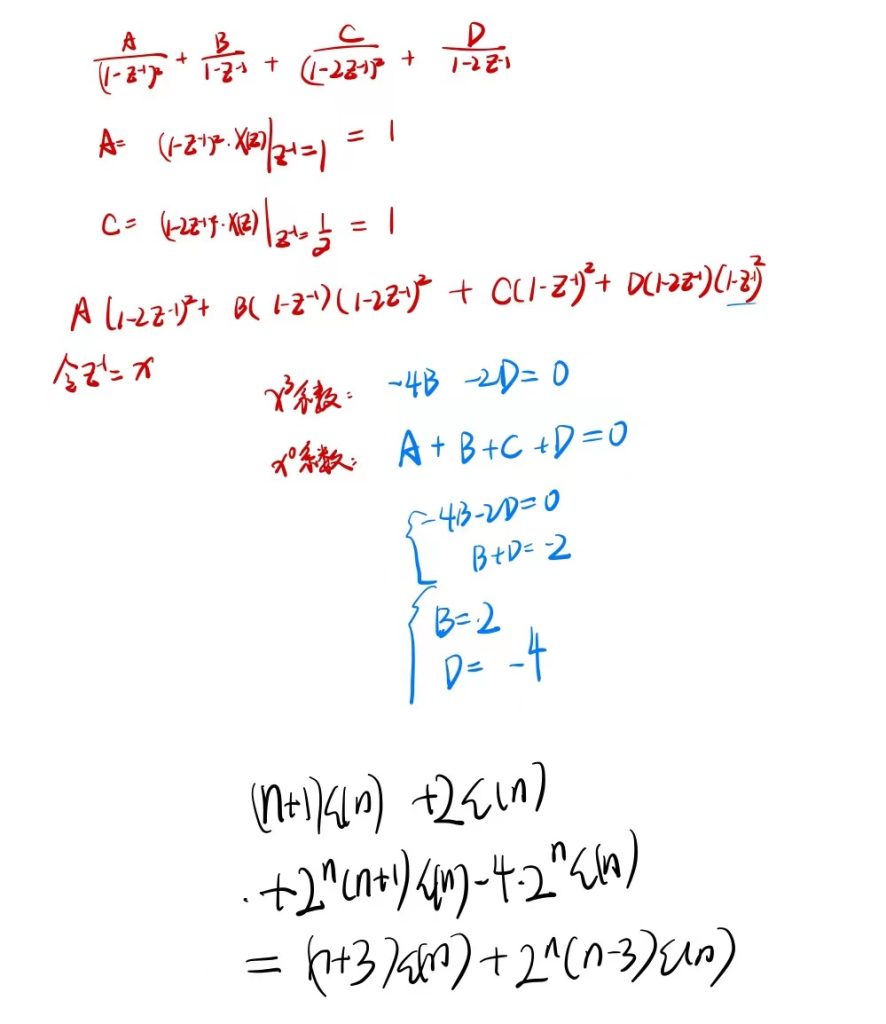 A/(1-z⁻¹)² + B/(1-z⁻¹) + C/(1-2z⁻¹)² + D/(1-2z⁻¹)
A= (1-z⁻¹)²·X(z)|z⁻¹=1 = 1
C= (1-2z⁻¹)²·X(z)|z⁻¹=1/2 = 1
A(1-2z⁻¹)²+ B(1-z⁻¹)(1-2z⁻¹)² + C(1-z⁻¹)²+ D(1-2z⁻¹)(1-z⁻¹)²
令z⁻¹= x
x³系数: -4B -2D= 0
x⁰系数: A+B+C+D=0
{-4B-2D=0
B+D=-2
{B=2
D= -4
(n+1)ε(n) +2ε(n)
+2ⁿ(n+1)ε(n)-4·2ⁿε(n)
= (n+3)ε(n)+2ⁿ(n-3)ε(n)